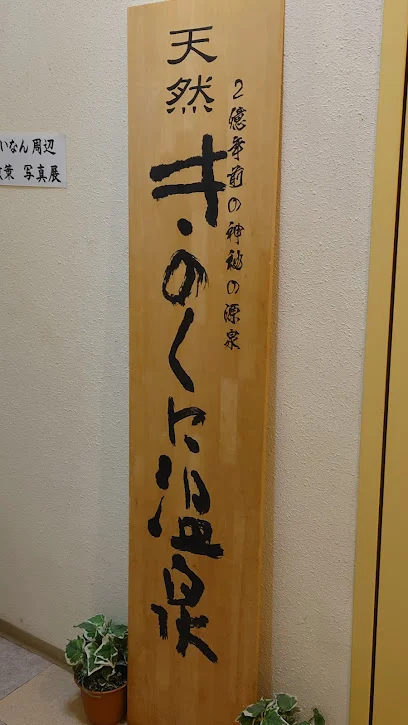 天然
きのくに温泉
2億年前の神秘の源泉
いなん周辺
散策 写真展